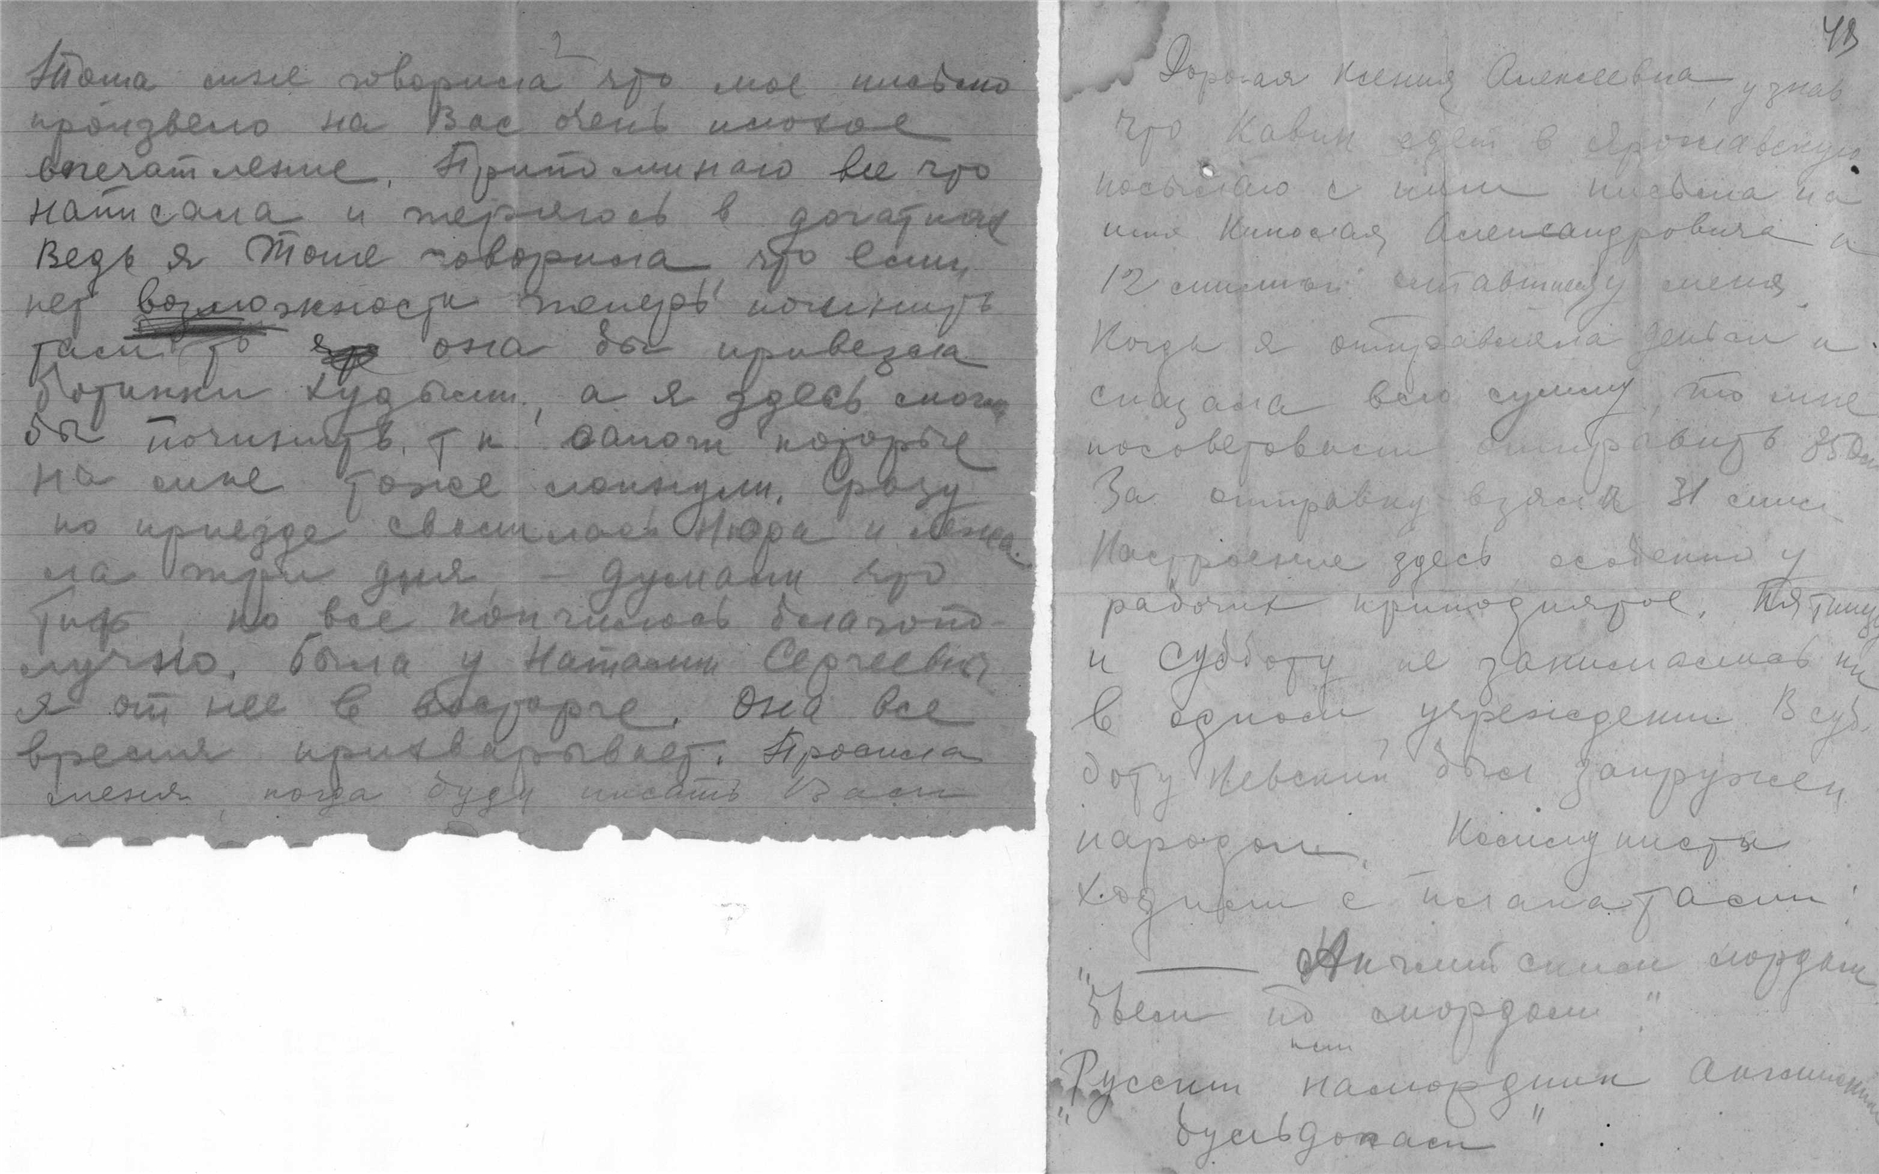 2
Тоша мне говорила что мое письмо
произвело на Вас очень плохое
впечатление. Припоминаю все что
написала и теряюсь в догатках
Ведь я Тоше говорила что если
нет возможности теперь починить
там то она бы привезла
ботинки худыми, а я здесь могла
бы починить. т к сапоги которые
на мне тоже лопнули. Сразу
по приезде свалилась Нюра и лежа-
ла три дня – думали что
тиф, но все кончилось благопо-
лучно. Была у Наталии Сергеевны
я от нее в восторге. Она все
время прихварывает. Просила
меня, когда буду писать Вам
43
Дорогая Ксения Алексеевна, узнав
что Кавин едет в Ярославскую
посылаю с ним письма на
имя Николая Александровича и
12 оставшиеся у меня.
Когда я отправляла деньги и
сказала всю сумму, то мне
посоветовали отправить
За отправку взяли 31
Настроение здесь особенно у
рабочих приподнятое. Пятницу
и Субботу не занимались ни
в одном учреждении. В суб-
боту Невский был запружен
народом. Коммунисты
ходили с плакатами:
" — Английским лордам
бьем по мордам".
"Русский намордник английским
бульдогам"